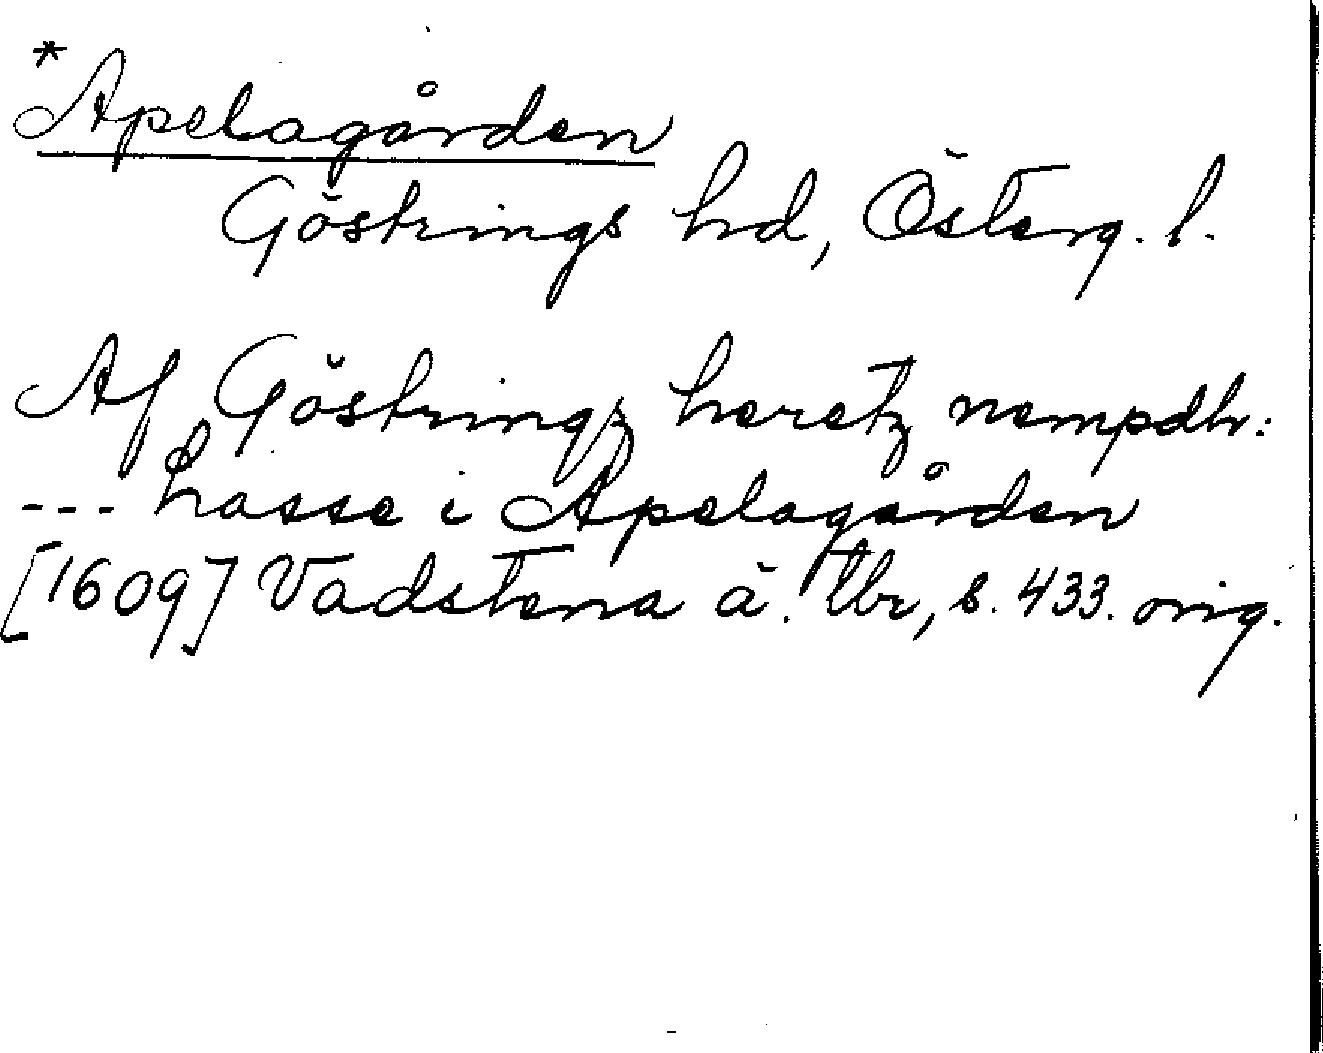 *Apelagården
Göstrings hd, Österg. l.
Af Göstringz heretz nempdh:
--- Lasse i Apelagården
[1609] Vadstena ä. tbr, s. 433. orig.